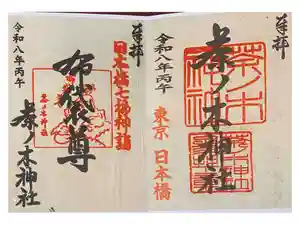 奉拝
茶ノ木神社
茶ノ木
神社
令和八年丙午
東京 日本橋
日本橋七福神詣
奉拝
布袋尊
茶ノ木神社
令和八年丙午
茶ノ木神社